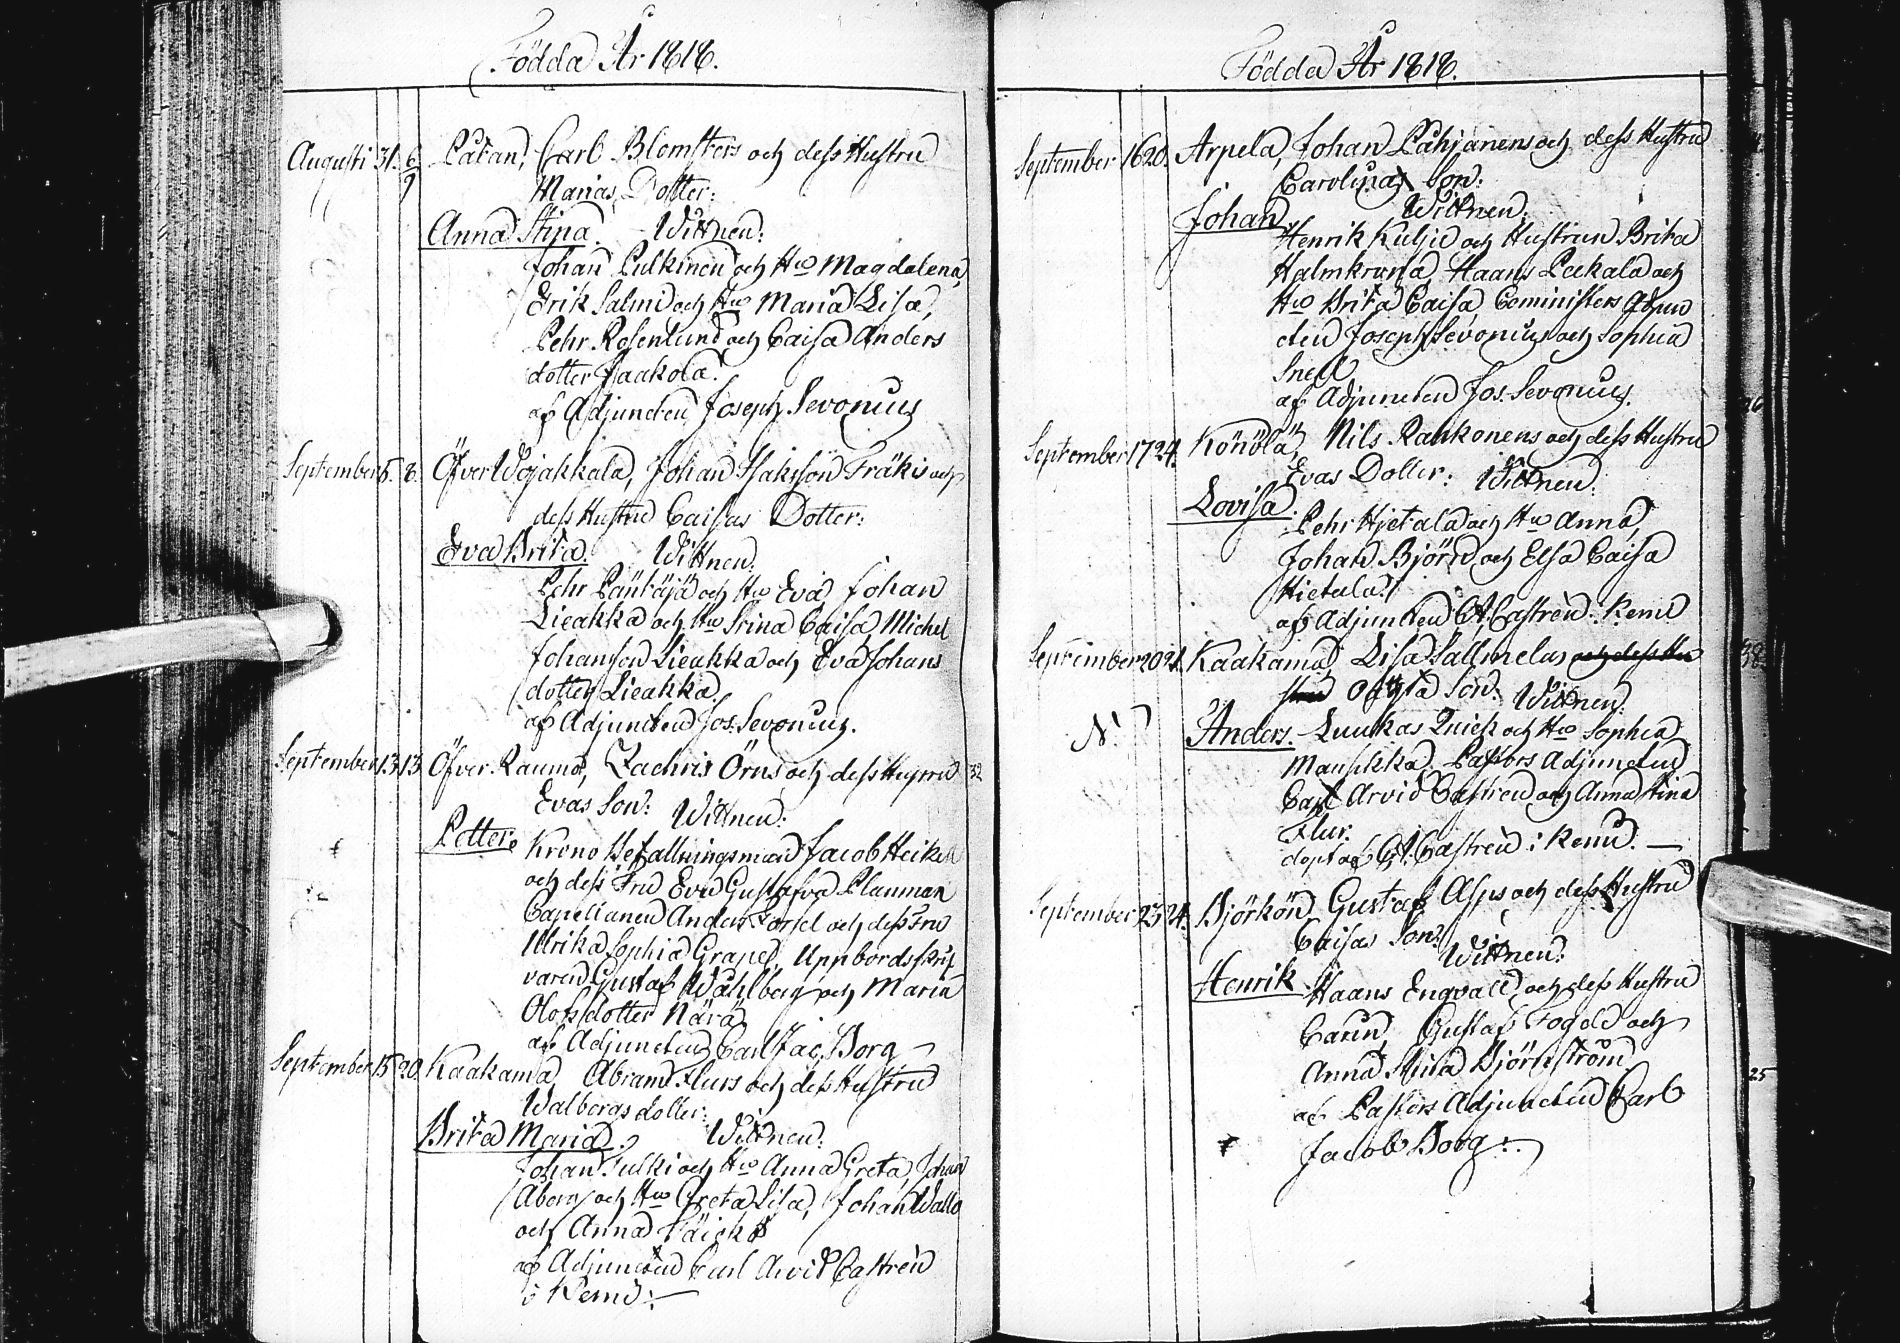 Födda År 1818.
Augusti 31. 6/9 Påtan, Carl Blomsters och dess Hustru
Marias Dotter:
Anna Stina. Wittnen:
Johan Pulkinen och Hu Magdalena,
Erik Salmi och Hu Maria Lisa,
Pehr Rosenlund och Caisa Anders
dotter Jaakola.
af Adjuncten Joseph Sevonius
September 6. 8. Öfver Wojakkala, Johan Isaksson Fräkis och
dess Hustru Caisas Dotter:
Eva Brita. Wittnen:
Pehr Päntäjä och Hu Eva Johan
Lieakka och Hu Stina Caisa, Michel
Johansson Lieakka och Eva Johans
dotter Lieakka,
af Adjuncten Jos. Sevonius.
September 13. 13 Öfver Raumo, Zachris Örns och dess Hustru 32
Evas Son: Wittnen:
Petter. Krono Befallningsman Jacob Heikel
och dess Fru Eva Gustafva Planman
Capellanen Anders Forsel och dess Fru
Ulrika Sophia Grape, Uppbordsskrif
varen Gustaf Wahlberg och Maria
Olofsdotter Närä
af Adjuncten Carl Jac. Borg
September 15. 20. Kaakama Abram Flurs och dess Hustru
Walborgs dotter:
Brita Maria. Wittnen:
Johan Fulki och Hu Anna Greta, Johan
Aberg och Hu Greta Lisa, Johan Wallo
och Anna
af Adjuncten Carl Arvid Castrén
i Kemi:
Födda År 1818.
September 16 20. Arpela, Johan Pahjanens och dess Hustru
Carolinas Son:
Johan Wittnen:
Henrik Kuljo och Hustrun Brita
Halmkrona, Haans Pekala och
Hu Brita Caisa Cominister Adjun
cten Joseph Sevonius och Sophia
Snell
af Adjuncten Jos. Sevonius.
September 17 24. Könölä, Nils Rankonens och dess Hustru
Evas Dotter: Wittnen:
Lovisa. Pehr Hjetala och Hu Anna,
Johan Björn och Elsa Caisa
Hietala.
af Adjuncten C A Castrén i Kemi
September 20 21. Kaakama, Lisa Sallmelas och dess Hu
stru oägta Son. Wittnen:
Anders. Luukas Quick och Hu Sophia
Mansikka. Pastors Adjuncten
Carl Arvid Castren och Anna Stina
Flur.
dopt af C A Castrén i Kemi.
September 23 24. Björkön, Gustaf Asps och dess Hustru
Caisas Son:
Wittnen:
Henrik Haans Engvall och dess Hustru
Carin, Gustaf Fogde och
Anna Stina Björnström
af Pastors Adjuncten Carl 25
Jacob Borg: